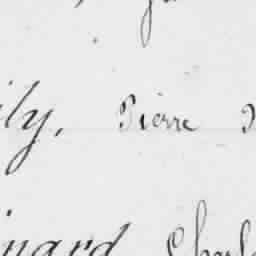 ily, Pierre
inard Charl